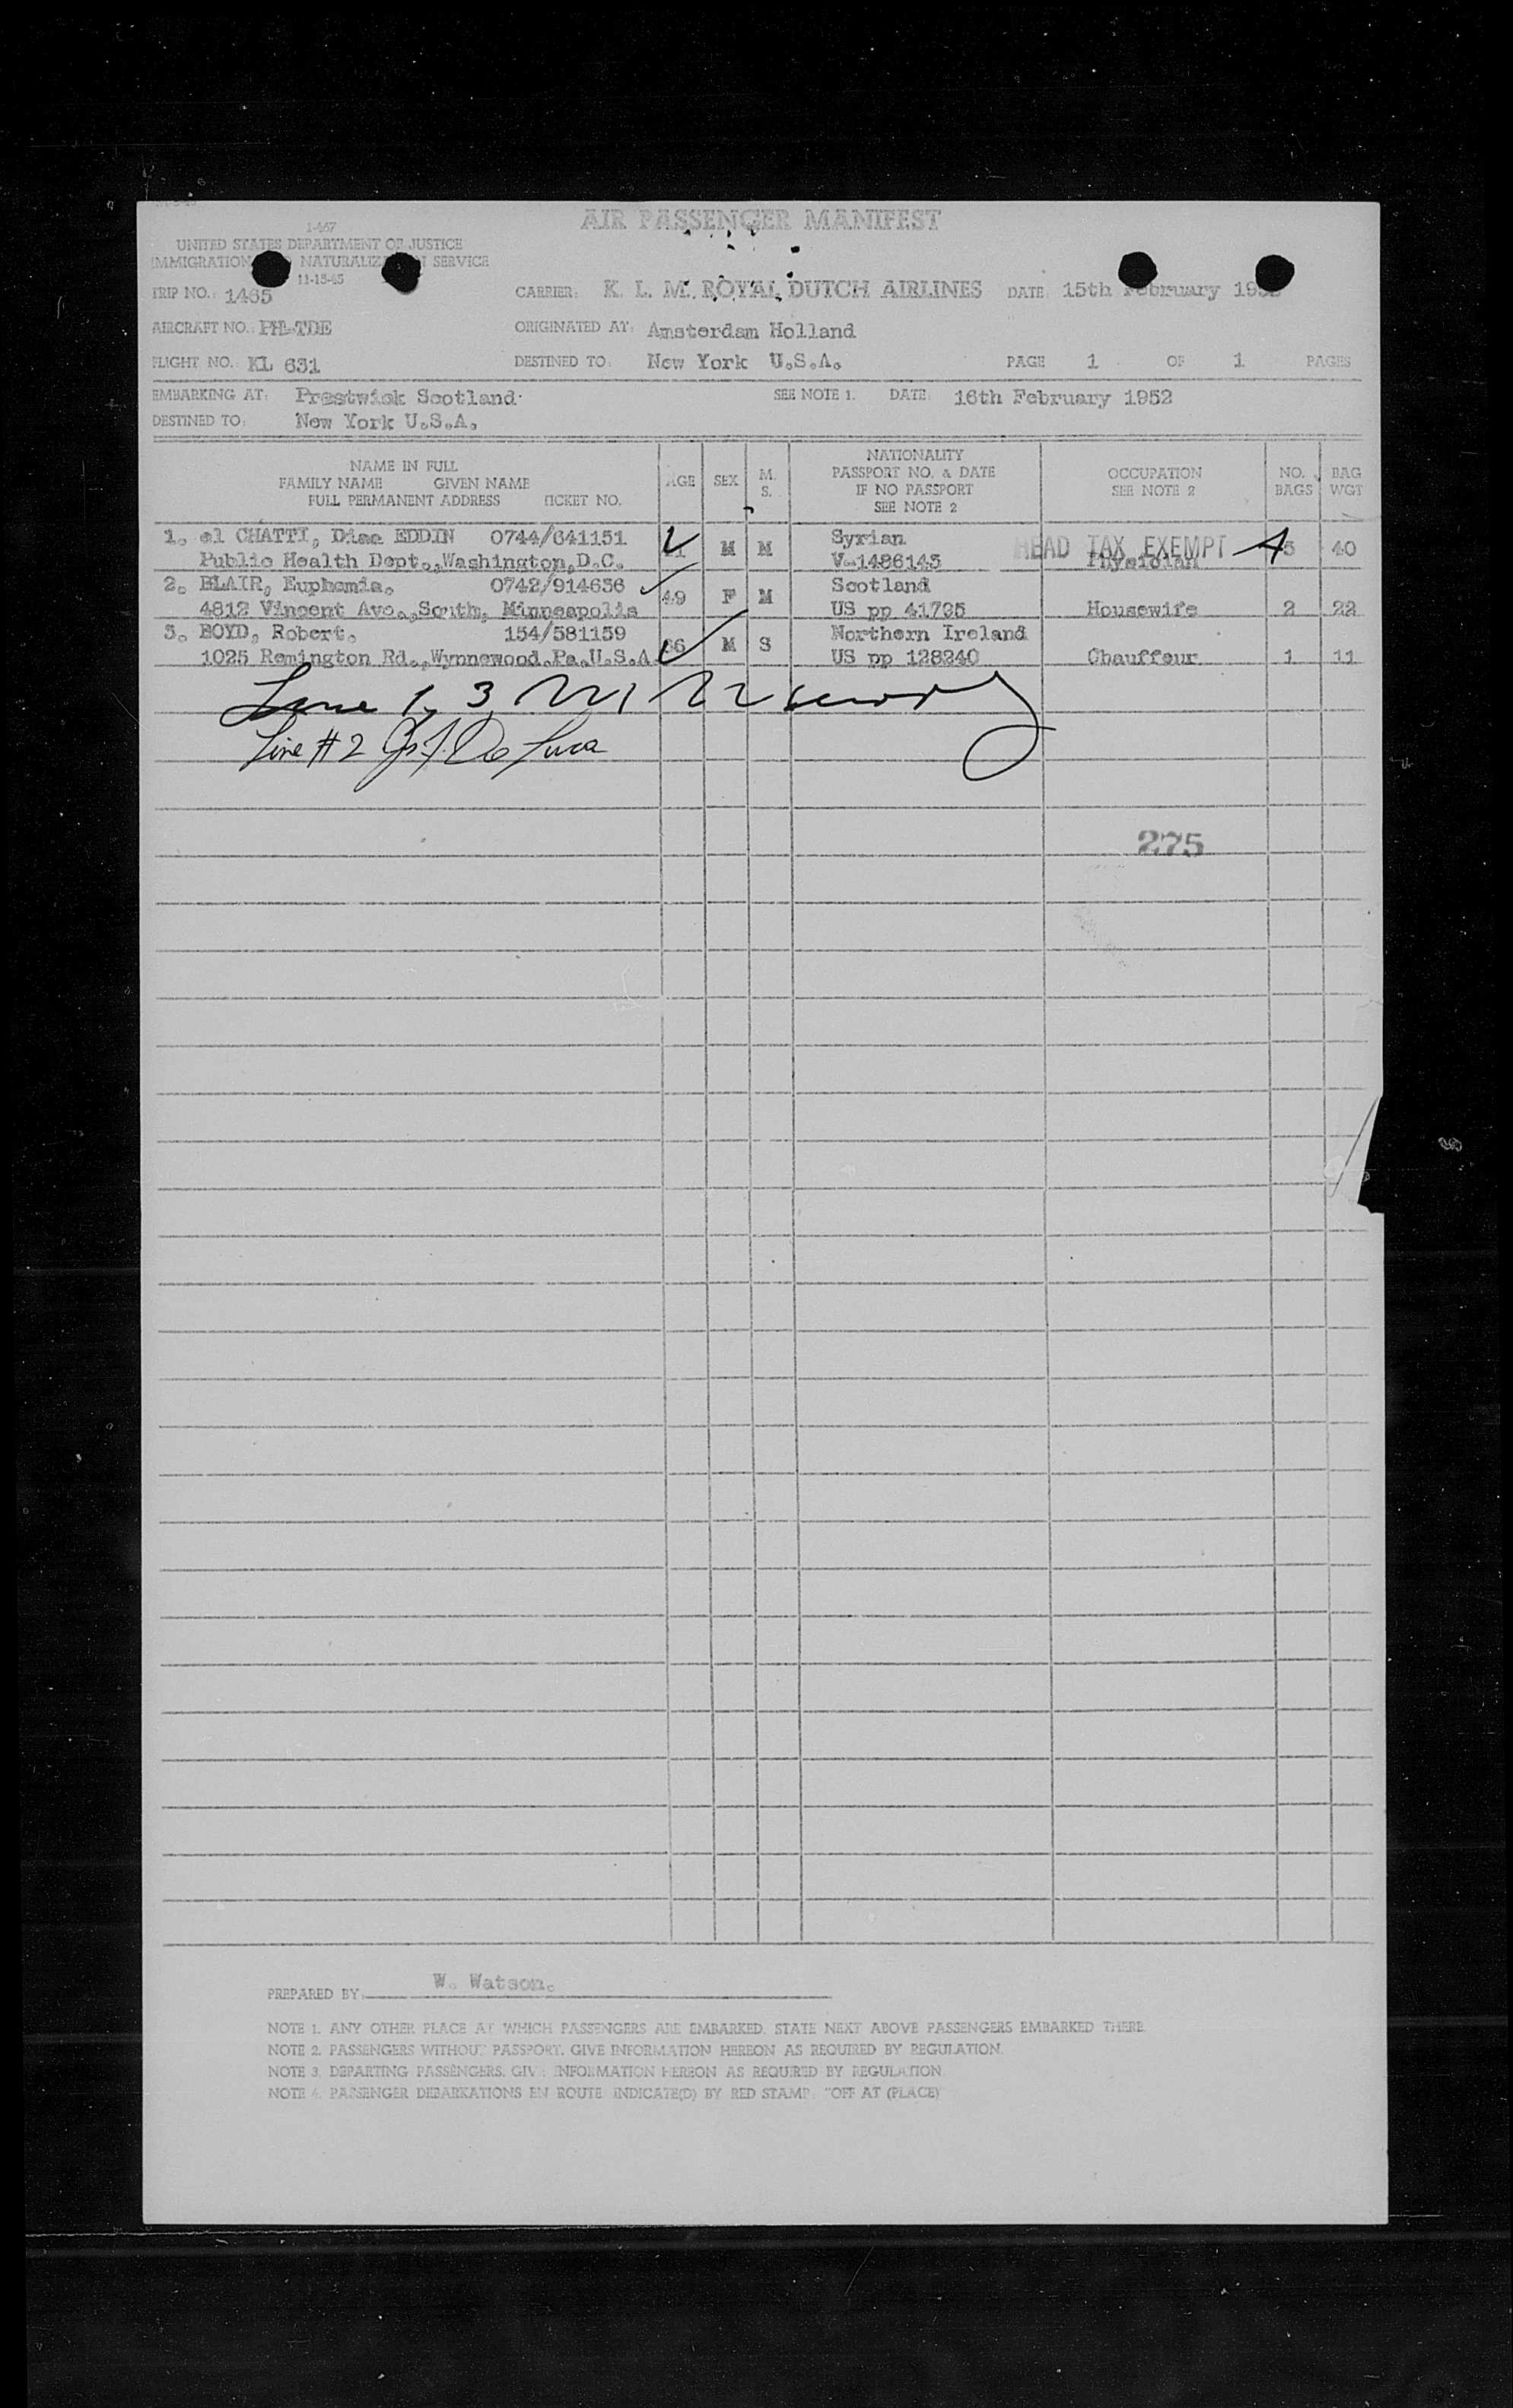 AIR PASSENGER MANIFEST
1-467
UNITED STATES DEPARTMENT OF JUSTICE
IMMIGRATION NATURALIZATION SERVICE
11-15-45
TRIP NO.: 1465 CARRIER: K. L. M. ROYAL DUTCH AIRLINES DATE: 15th February
AIRCRAFT NO.: PH-TDE ORIGINATED AT: Amsterdam Holland
FLIGHT NO.: KL 631 DESTINED TO: New York U.S.A. PAGE 1 OF 1 PAGES
EMBARKING AT: Prestwick Scotland SEE NOTE 1. DATE: 16th February 1952
DESTINED TO: New York U.S.A.
NAME IN FULL
FAMILY NAME GIVEN NAME
FULL PERMANENT ADDRESS TICKET NO.
AGE SEX M. S.
NATIONALITY
PASSPORT NO. & DATE
IF NO PASSPORT
SEE NOTE 2
OCCUPATION
SEE NOTE 2
NO. BAGS
BAG WGT
1. el CHATTI, EDDIN 0744/641151 M M Syrian HEAD TAX EXEMPT 40
Public Health Dept., Washington, D.C. V-1486143 Physician
2. BLAIR, Euphemia. 0742/914636 49 F M Scotland
4812 Vincent Ave., South, Minneapolis US pp 41795 Housewife 2 22
3. BOYD, Robert. 154/581159 M S Northern Ireland
1025 Remington Rd., Wynnewood, Pa, U.S.A. US pp 128240 Chauffeur 1 11
Line 1, 3
Line #2 De Luca
275
PREPARED BY: W. Watson.
NOTE 1. ANY OTHER PLACE AT WHICH PASSENGERS ARE EMBARKED. STATE NEXT ABOVE PASSENGERS EMBARKED THERE.
NOTE 2. PASSENGERS WITHOUT PASSPORT. GIVE INFORMATION HEREON AS REQUIRED BY REGULATION.
NOTE 3. DEPARTING PASSENGERS. GIVE INFORMATION HEREON AS REQUIRED BY REGULATION.
NOTE 4. PASSENGER DEBARKATIONS EN ROUTE INDICATE(D) BY RED STAMP: "OFF AT (PLACE)